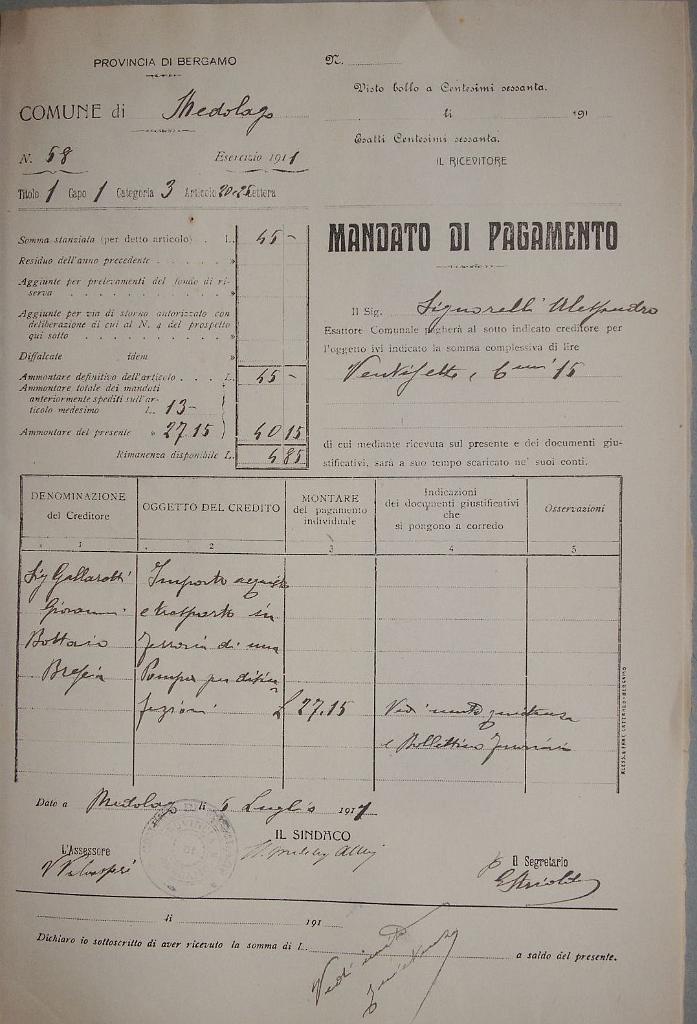 PROVINCIA DI BERGAMO
COMUNE di Medolago
N. 58 Esercizio 1911
Titolo 1 Capo 1 Categoria 3 Articolo 20-25 Lettera
N.
Visto bollo a Centesimi sessanta.
li 191
Esatti Centesimi sessanta.
IL RICEVITORE
Somma stanziata (per detto articolo) . L. 45 -
Residuo dell'anno precedente . . . . »
Aggiunte per prelevamenti del fondo di ri-
serva . . . . . . . . . . »
Aggiunte per via di storno autorizzato con
deliberazione di cui al N. 4 del prospetto
qui sotto . . . . . . . . . »
Diffalcate idem »
Ammontare definitivo dell'articolo . . . L. 45 -
Ammontare totale dei mandati
anteriormente spediti sull'ar-
ticolo medesimo L. 13 -
Ammontare del presente » 27.15 40 15
Rimanenza disponibile L. 4 85
MANDATO DI PAGAMENTO
Il Sig. Signorelli Alessandro
Esattore Comunale pagherà al sotto indicato creditore per
l'oggetto ivi indicato la somma complessiva di lire
Ventisette, Cmi 15
di cui mediante ricevuta sul presente e dei documenti giu-
stificativi, sarà a suo tempo scaricato ne' suoi conti.
DENOMINAZIONE
del Creditore
OGGETTO DEL CREDITO
MONTARE
del pagamento
individuale
Indicazioni
dei documenti giustificativi
che
si pongono a corredo
Osservazioni
1 2 3 4 5
Sig Gallarotti Importo acquisto
Giovanni e trasporto in
Bottaio ferrovia di una
Brescia Pompa per disin
fezioni L 27.15 Vedi unita quietanza
e Bollettino ferrovia
ALESS. e FRAT. CATTANEO - BERGAMO
Dato a Medolago li 5 Luglio 1911
L'Assessore
IL SINDACO
Il Segretario
li 191
Dichiaro io sottoscritto di aver ricevuto la somma di L. a saldo del presente.
Vedi unita
quietanza